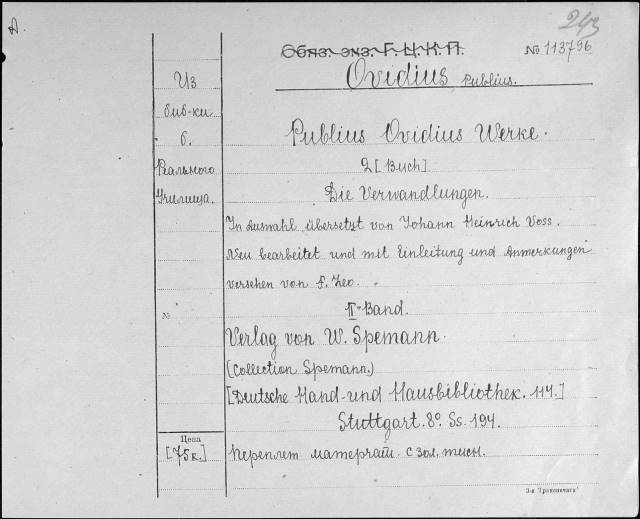 243
Обяз. экз. Г.Ц.К.П.
№ 113796
Ovidius Publius.
Из
биб-ки
б.
Реального
Училища.
Publius Ovidius Werke.
2 [Buch]
Die Verwandlungen.
In Auswahl übersetzt von Johann Heinrich Voss.
Neu bearbeitet und mit Einleitung und Anmerkungen
versehen von F. Leo.
№
II-Band.
Verlag von W. Spemann.
(Collection Spemann.)
[Deutsche Hand-und Hausbibliothek. 114.]
Stuttgart. 8º. Ss. 194.
Цена
[75 к.]
Переплет матерчат. с зол. тисн.
З-я "Транспечать"